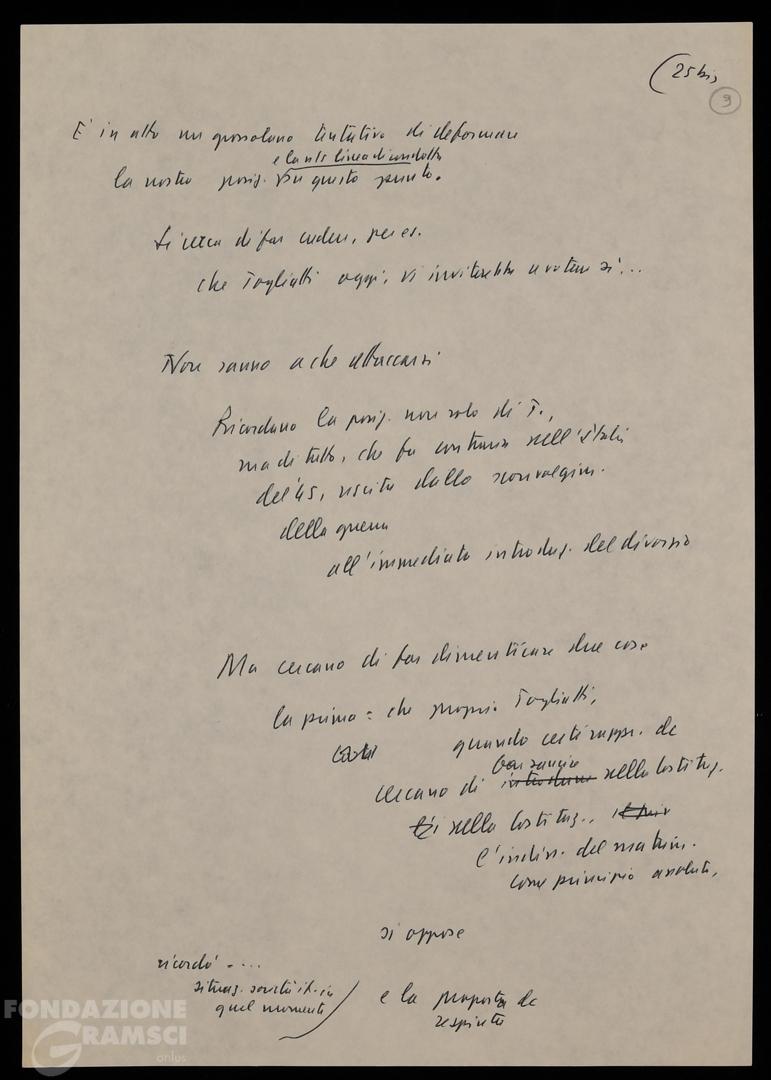 (25 bis
9
E' in atto un grossolano tentativo di deformare
e la ns linea di condotta
la nostra posiz. su questo punto.
Si cerca di far creder, per es.
che Togliatti oggi, vi inviterebbe a votare sì...
Non sanno a che attaccarsi
Ricordano la posiz. non solo di T.,
ma di tutti, che fu contraria nell'Italia
del '45, uscita dallo sconvolgim.
della guerra
all'immediata introduz. del divorzio
Ma cercano di far dimenticare due cose
la prima: che proprio Togliatti,
quando certi rappr. dc
cercano di sancire nella Costituz.
nella Costituz.,
l'indiss. del matrim.
come principio assoluto,
si oppose
ricordò - ...
situaz. società it. in
quel momento
e la proposta dc
respinta
FONDAZIONE
GRAMSCI
onlus